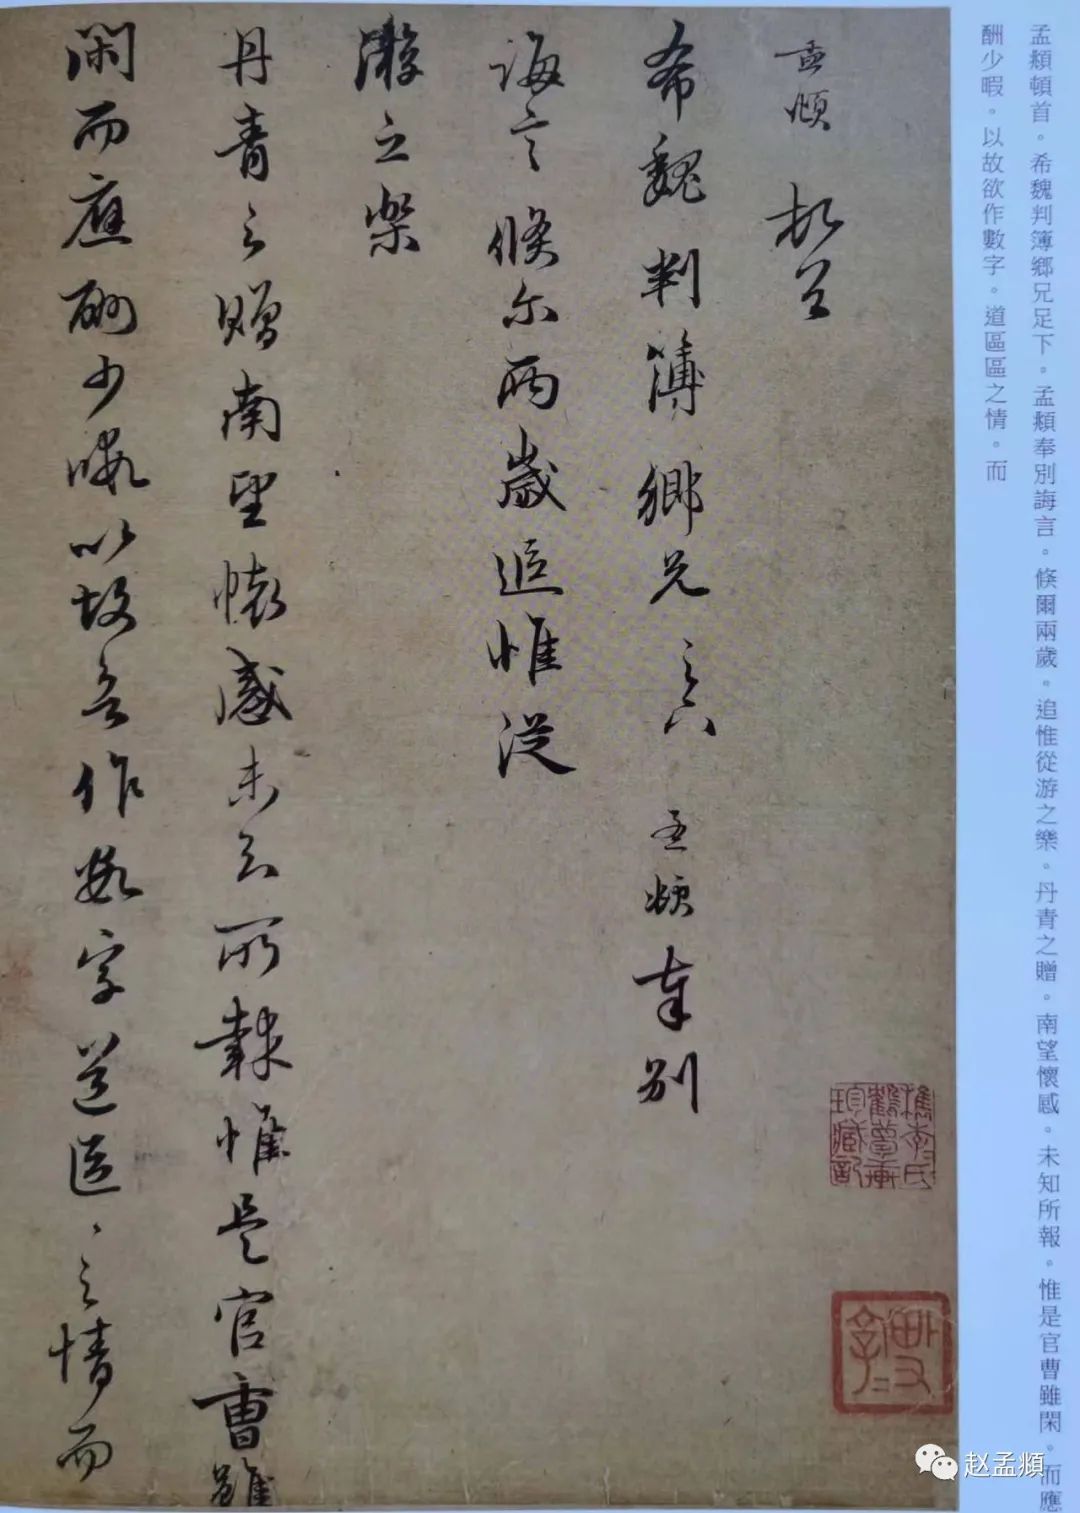 孟頫頓首。希魏判簿鄉兄足下。孟頫奉別誨言。倏爾兩歲。追惟從游之樂。丹青之贈。南望懷感。未知所報。惟是官曹雖閑。而應
酬少暇。以故欲作數字。道區區之情。而
孟頫頓首
希魏判簿鄉兄足下孟頫奉別
誨言倏尔兩歲追惟從
游之樂
丹青之贈南望懷感未知所報惟是官曹雖
閑而應酬少暇以故欲作數字道區〻之情而
檇李李氏
鶴夢軒
珍藏記
赵孟頫